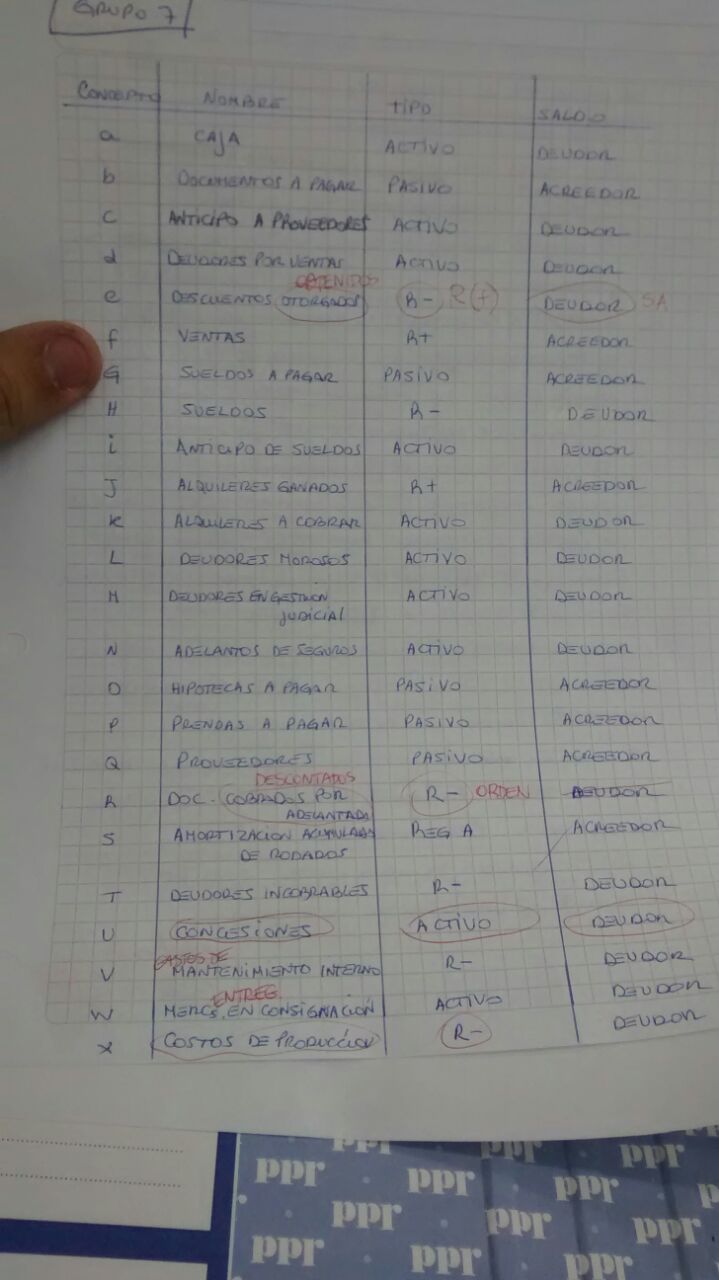 GRUPO 7
CONCEPTO NOMBRE TIPO SALDO
a CAJA ACTIVO DEUDOR
b DOCUMENTOS A PAGAR PASIVO ACREEDOR
C ANTICIPO A PROVEEDORES ACTIVO DEUDOR
d DEUDORES POR VENTAS ACTIVO DEUDOR
OBTENIDOS
e DESCUENTOS OTORGADOS R- R(+) DEUDOR SA
f VENTAS R+ ACREEDOR
G SUELDOS A PAGAR PASIVO ACREEDOR
H SUELDOS R- DEUDOR
i ANTICIPO DE SUELDOS ACTIVO DEUDOR
J ALQUILERES GANADOS R+ ACREEDOR
K ALQUILERES A COBRAR ACTIVO DEUDOR
L DEUDORES MOROSOS ACTIVO DEUDOR
M DEUDORES EN GESTION ACTIVO DEUDOR
JUDICIAL
N ADELANTOS DE SEGUROS ACTIVO DEUDOR
O HIPOTECAS A PAGAR PASIVO ACREEDOR
P PRENDAS A PAGAR PASIVO ACREEDOR
Q PROVEEDORES PASIVO ACREEDOR
DESCONTADOS
R DOC. COBRADOS POR R- ORDEN DEUDOR
ADELANTADO
S AMORTIZACION ACUMULADA REG A ACREEDOR
DE RODADOS
T DEUDORES INCOBRABLES R- DEUDOR
U CONCESIONES ACTIVO DEUDOR
GASTOS DE
V MANTENIMIENTO INTERNO R- DEUDOR
ENTREG.
W MERCS. EN CONSIGNACIÓN ACTIVO DEUDOR
X COSTOS DE PRODUCCIÓN R- DEUDOR
ppr ppr ppr ppr
ppr ppr ppr
ppr ppr ppr
ppr ppr